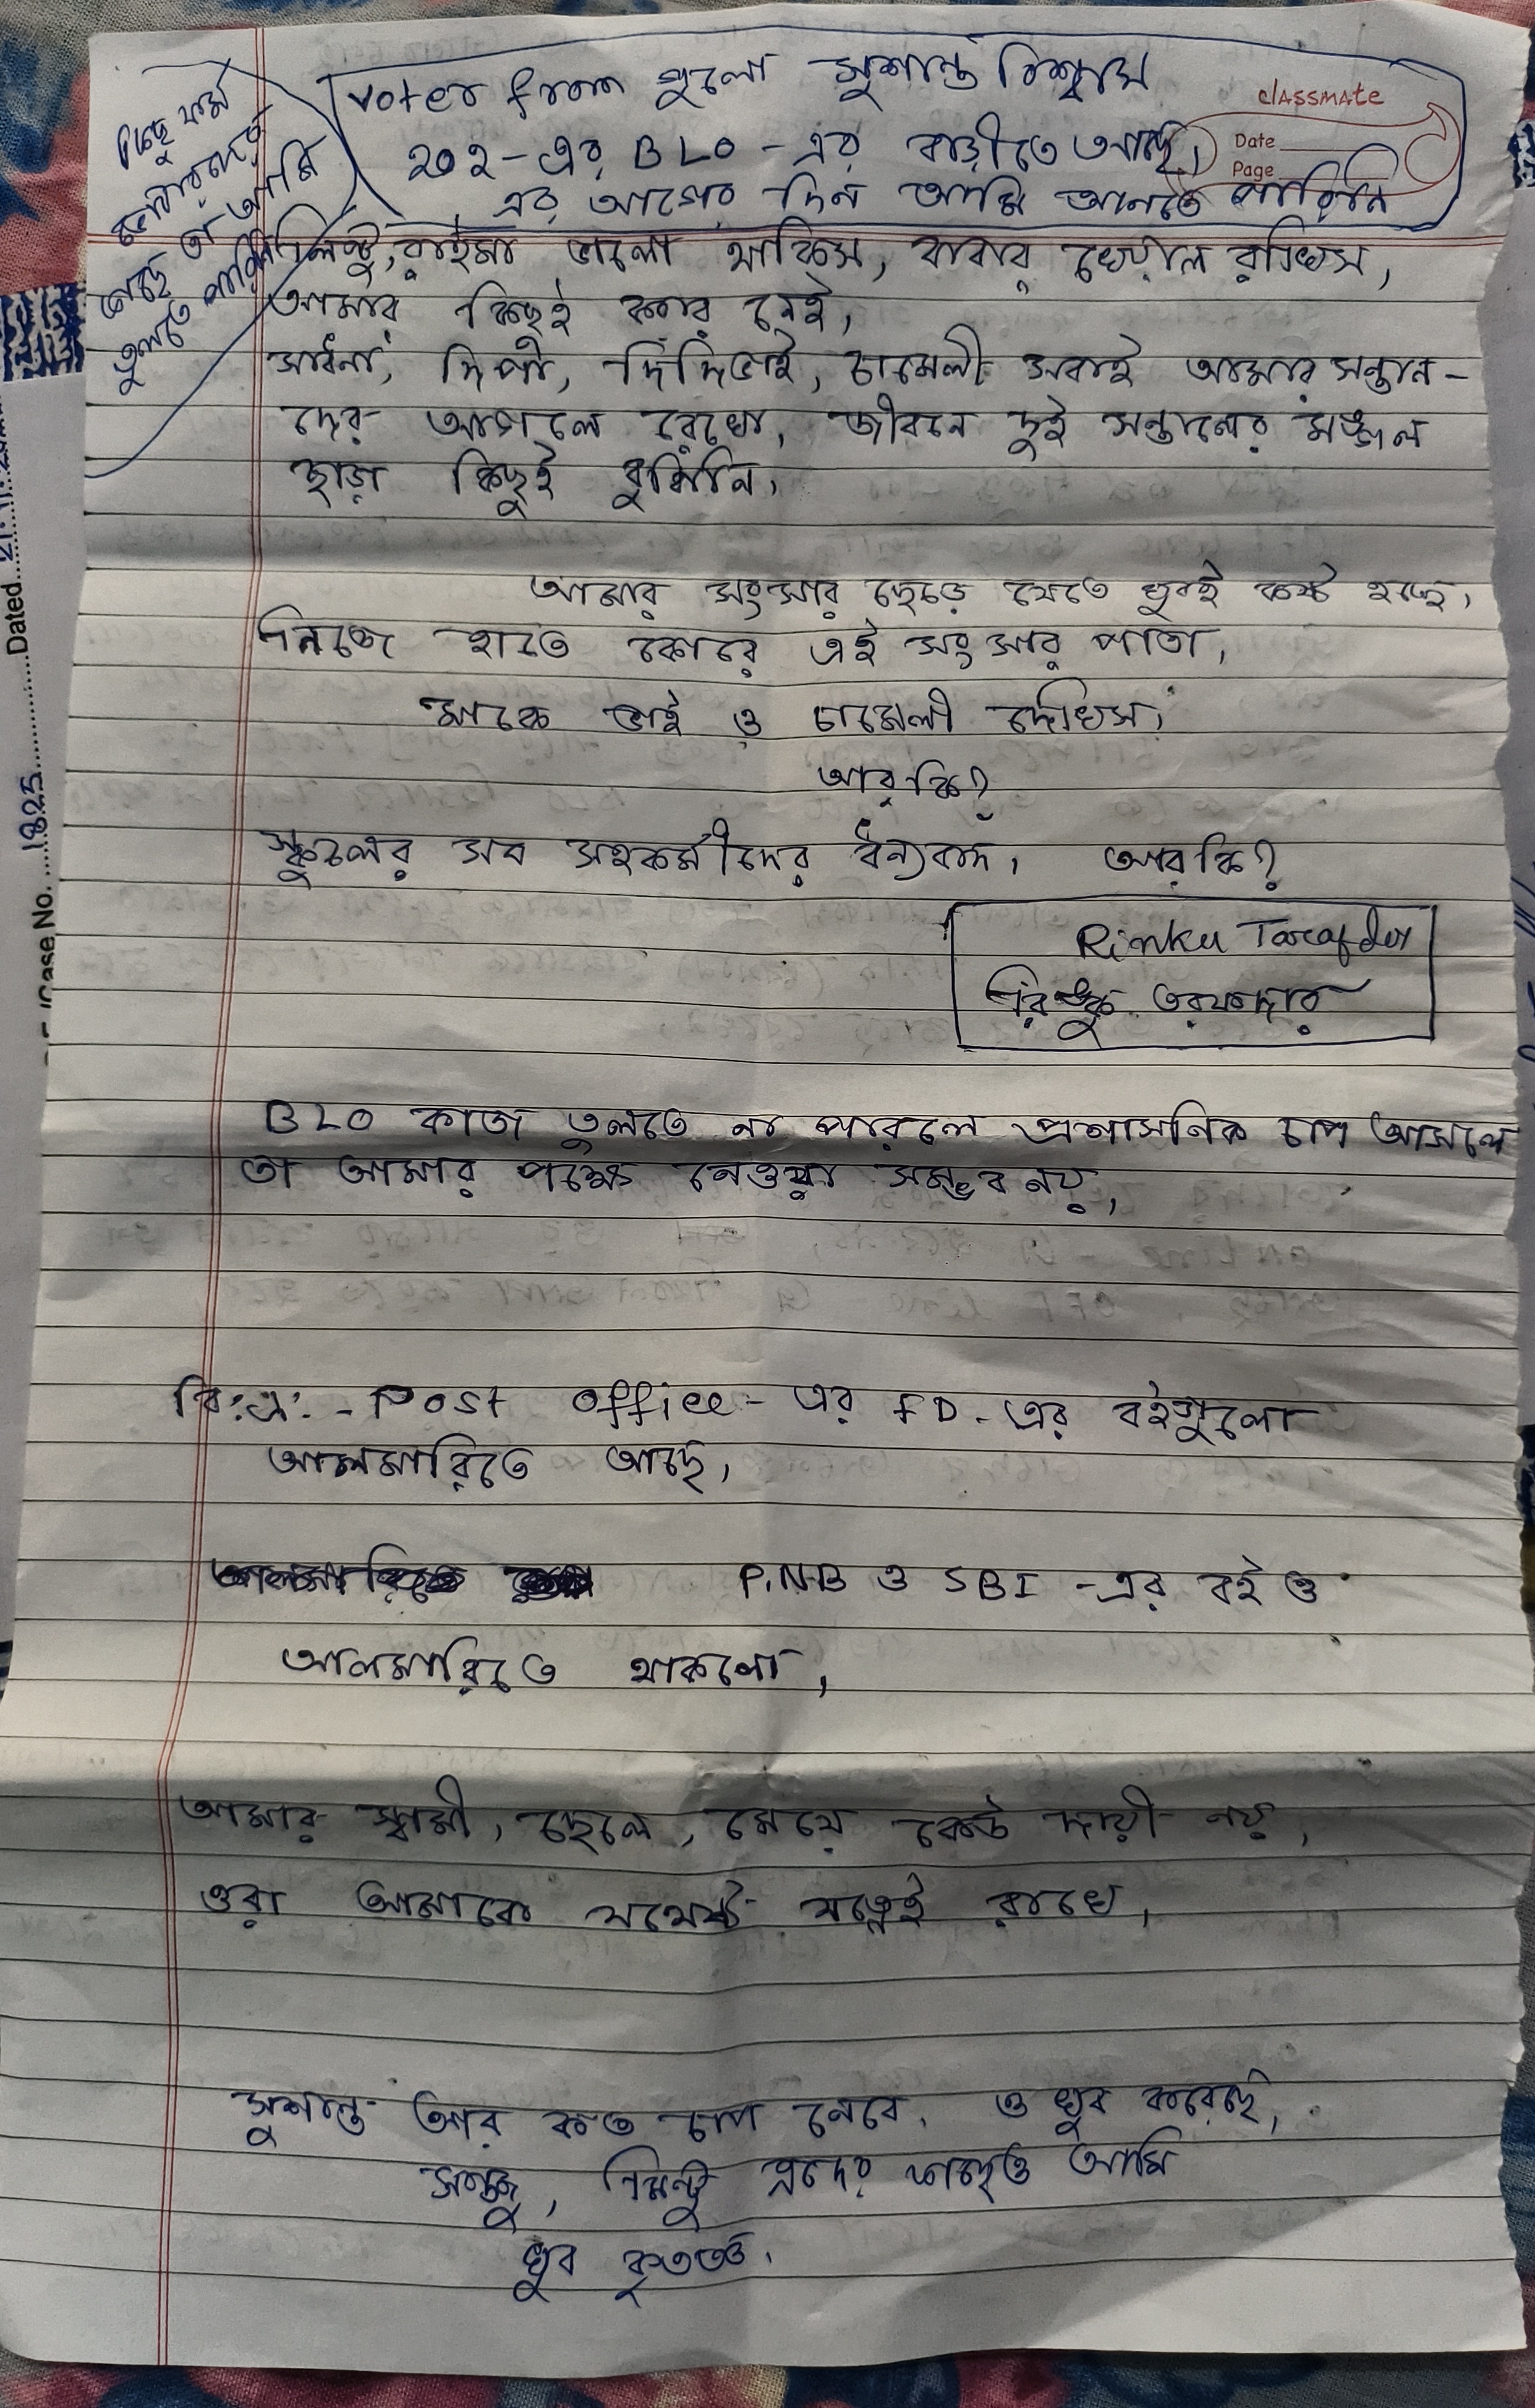 Voter from গুলো সুশান্ত বিশ্বাস
classmate
২০২-এর BLO-এর বাড়ীতে আছে,
Date
Page
এর আগের দিন আমি আনতে পারিনি
কিছু ফর্ম
আমি
তুলতে পারিনি
রাইমা ভালো থাকিস, বাবার খেয়াল রাখিস,
আমার কিছুই করার নেই,
সাধনা, দিপা, দিদিভাই, চামেলী সবাই আমার সন্তান-
দের আগলে রেখো, জীবনে দুই সন্তানের মঙ্গল
ছাড়া কিছুই বুঝিনি,
আমার সংসার ছেড়ে যেতে খুবই কষ্ট হচ্ছে,
নিজে হাতে কোরে এই সংসার পাতা,
মাকে ভাই ও চামেলী দেখিস,
আর কি?
স্কুলের সব সহকর্মীদের ধন্যবাদ, আর কি?
Rinku Tarafdar
রিঙ্কু তরফদার
BLO কাজ তুলতে না পারলে প্রশাসনিক চাপ আসলে
তা আমার পক্ষে নেওয়া সম্ভব নয়,
বি:দ্র:- Post Office-এর FD-এর বইগুলো
আলমারিতে আছে,
P.N.B ও SBI-এর বই ও
আলমারিতে থাকলো,
আমার স্বামী, ছেলে, মেয়ে কেউ দায়ী নয়,
ওরা আমাকে যথেষ্ট যত্নেই রাখে,
সুশান্ত আর কত চাপ নেবে, ও খুব করেছে,
এদের কাছেও আমি
খুব কৃতজ্ঞ,
Dated
Case No. 1825